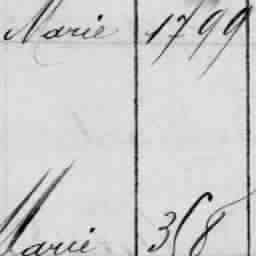 Marie 1799
Marie 358